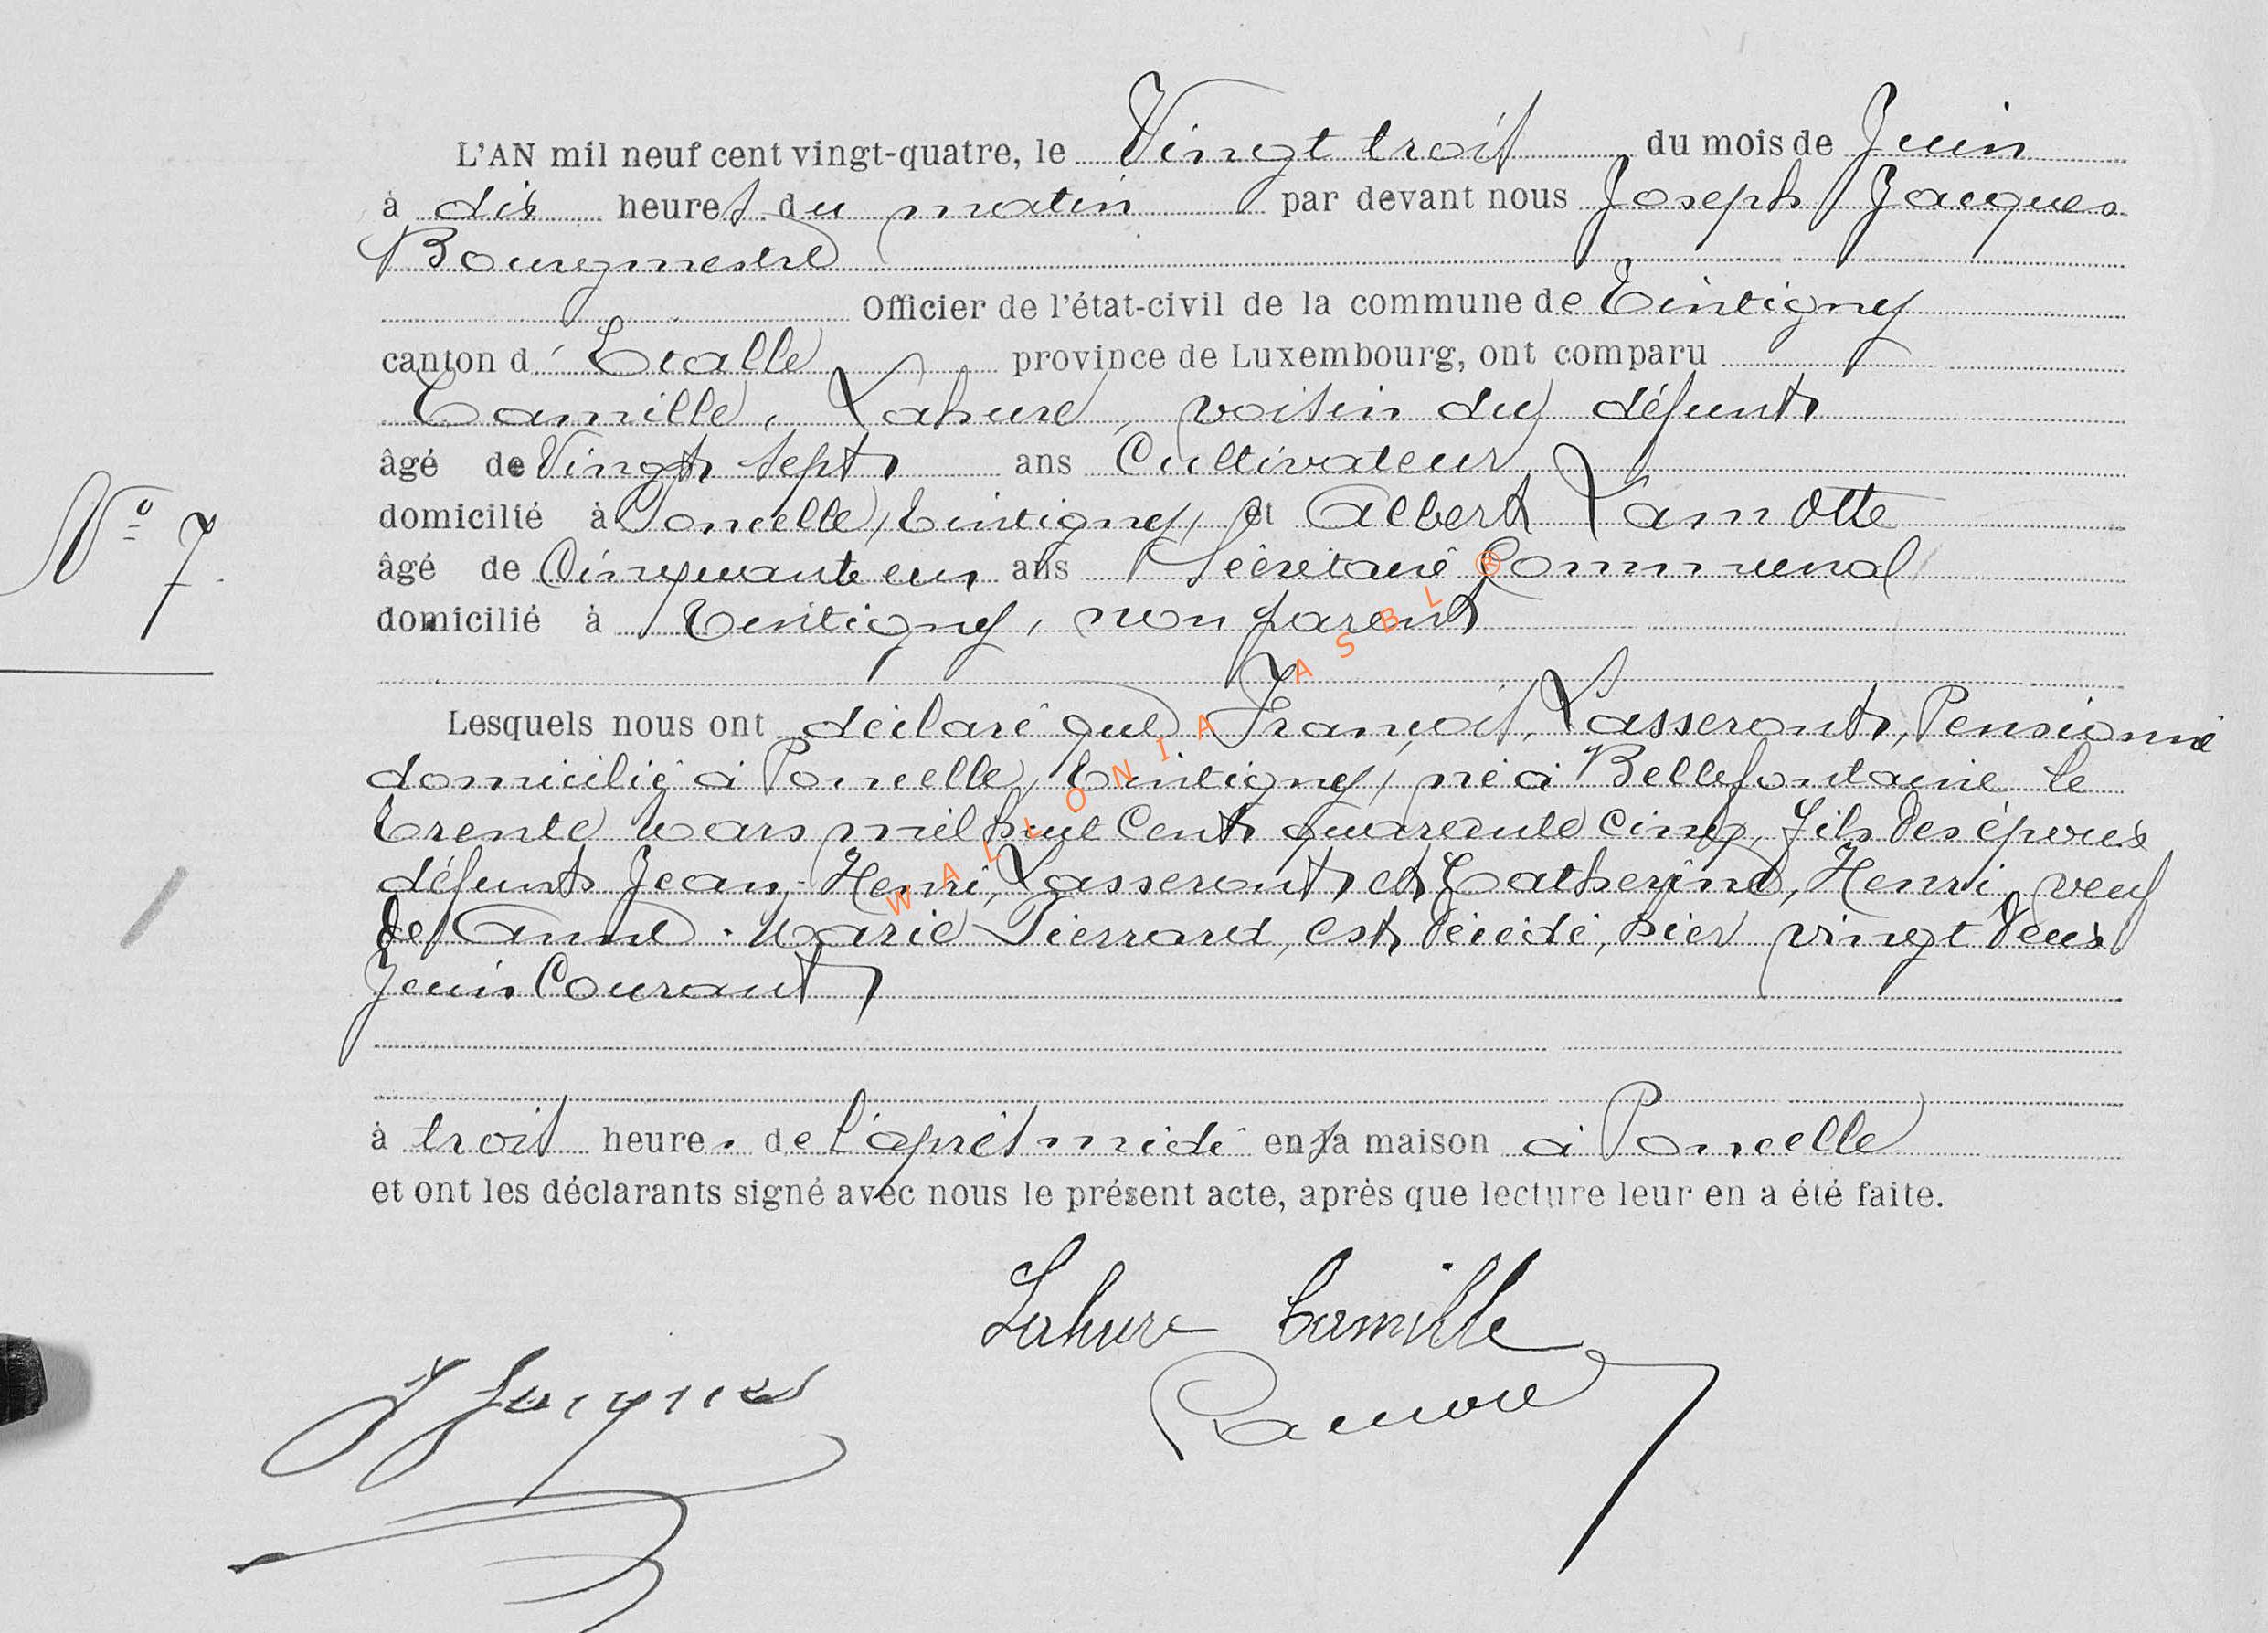 L'AN mil neuf cent vingt-quatre, le Vingt trois du mois de Juin
à dix heures du matin par devant nous Joseph Jacques
Bourgmestre
Officier de l'état-civil de la commune de Tintigny
canton d' Etalle province de Luxembourg, ont comparu
Camille, Lahure, voisin du défunt
âgé de Vingt sept ans Cultivateur
domicilié à Poncelle, Tintigny, et Albert Lamotte
N° 7.
âgé de Cinquante un ans Sécrétaire Communal
domicilié à Tintigny, non parent
Lesquels nous ont déclaré que François, Lasseront, Pensionné
domicilié à Poncelle, Tintigny, né à Bellefontaine le
trente mars mil huit Cent quarante cinq, fils des époux
défunts Jean-Henri, Lasseront et Catherine, Henri, veuf
de Anne-Marie Pierrard, est décédé, hier vingt deux
Juin Courant
à trois heures de l'après midi en sa maison à Poncelle
et ont les déclarants signé avec nous le présent acte, après que lecture leur en a été faite.
Lahure Camille
J Jacques
WALLONIA ASBL ®